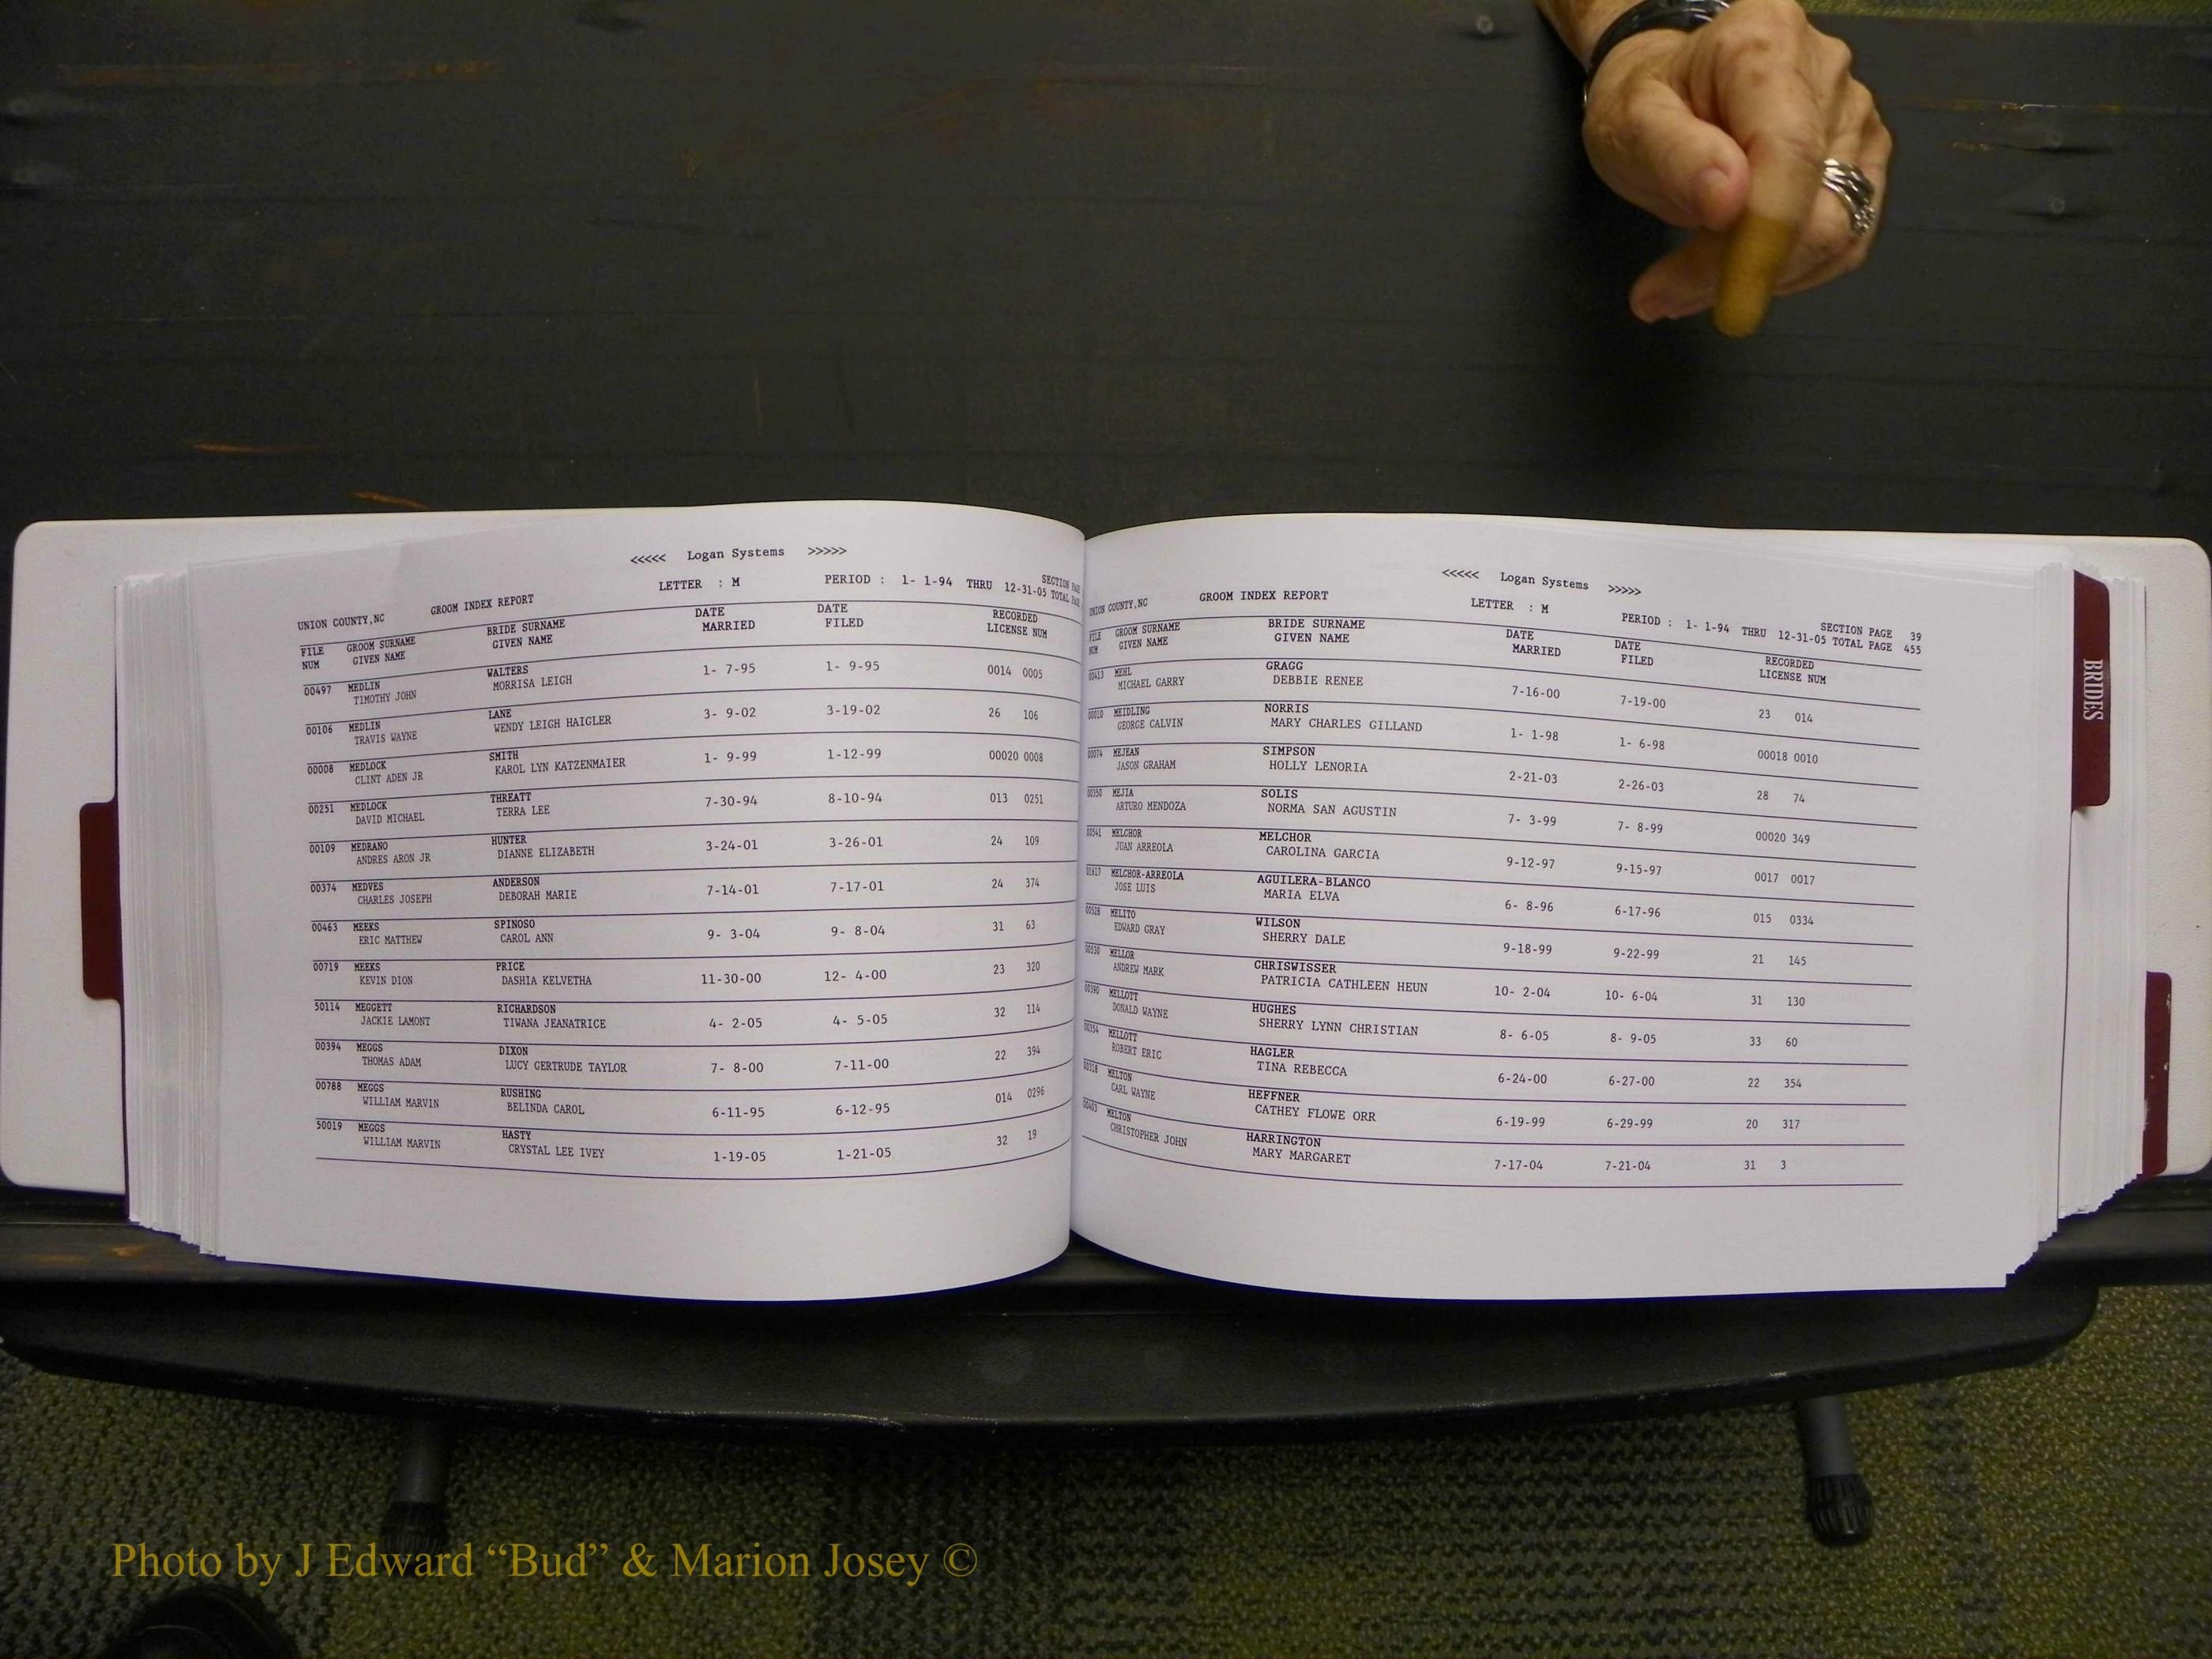 <<<<< Logan Systems >>>>>
UNION COUNTY,NC GROOM INDEX REPORT LETTER : M PERIOD : 1- 1-94 THRU 12-31-05 SECTION
TOTAL
FILE GROOM SURNAME BRIDE SURNAME DATE DATE RECORDED
NUM GIVEN NAME GIVEN NAME MARRIED FILED LICENSE NUM
00497 MEDLIN WALTERS 1- 7-95 1- 9-95 0014 0005
TIMOTHY JOHN MORRISA LEIGH
00106 MEDLIN LANE 3- 9-02 3-19-02 26 106
TRAVIS WAYNE WENDY LEIGH HAIGLER
00008 MEDLOCK SMITH 1- 9-99 1-12-99 00020 0008
CLINT ADEN JR KAROL LYN KATZENMAIER
00251 MEDLOCK THREATT 7-30-94 8-10-94 013 0251
DAVID MICHAEL TERRA LEE
00109 MEDRANO HUNTER 3-24-01 3-26-01 24 109
ANDRES ARON JR DIANNE ELIZABETH
00374 MEDVES ANDERSON 7-14-01 7-17-01 24 374
CHARLES JOSEPH DEBORAH MARIE
00463 MEEKS SPINOSO 9- 3-04 9- 8-04 31 63
ERIC MATTHEW CAROL ANN
00719 MEEKS PRICE 11-30-00 12- 4-00 23 320
KEVIN DION DASHIA KELVETHA
50114 MEGGETT RICHARDSON 4- 2-05 4- 5-05 32 114
JACKIE LAMONT TIWANA JEANATRICE
00394 MEGGS DIXON 7- 8-00 7-11-00 22 394
THOMAS ADAM LUCY GERTRUDE TAYLOR
00788 MEGGS RUSHING 6-11-95 6-12-95 014 0296
WILLIAM MARVIN BELINDA CAROL
50019 MEGGS HASTY 1-19-05 1-21-05 32 19
WILLIAM MARVIN CRYSTAL LEE IVEY
<<<<< Logan Systems >>>>>
UNION COUNTY,NC GROOM INDEX REPORT LETTER : M PERIOD : 1- 1-94 THRU 12-31-05 SECTION PAGE 39
TOTAL PAGE 455
FILE GROOM SURNAME BRIDE SURNAME DATE DATE RECORDED
NUM GIVEN NAME GIVEN NAME MARRIED FILED LICENSE NUM
00413 MEHL GRAGG 7-16-00 7-19-00 23 014
MICHAEL GARRY DEBBIE RENEE
00010 MEIDLING NORRIS 1- 1-98 1- 6-98 00018 0010
GEORGE CALVIN MARY CHARLES GILLAND
00074 MEJEAN SIMPSON 2-21-03 2-26-03 28 74
JASON GRAHAM HOLLY LENORIA
00350 MEJIA SOLIS 7- 3-99 7- 8-99 00020 349
ARTURO MENDOZA NORMA SAN AGUSTIN
00541 MELCHOR MELCHOR 9-12-97 9-15-97 0017 0017
JUAN ARREOLA CAROLINA GARCIA
01617 MELCHOR-ARREOLA AGUILERA-BLANCO 6- 8-96 6-17-96 015 0334
JOSE LUIS MARIA ELVA
00528 MELITO WILSON 9-18-99 9-22-99 21 145
EDWARD GRAY SHERRY DALE
00530 MELLOR CHRISWISSER 10- 2-04 10- 6-04 31 130
ANDREW MARK PATRICIA CATHLEEN HEUN
00390 MELLOTT HUGHES 8- 6-05 8- 9-05 33 60
DONALD WAYNE SHERRY LYNN CHRISTIAN
00354 MELLOTT HAGLER 6-24-00 6-27-00 22 354
ROBERT ERIC TINA REBECCA
00318 MELTON HEFFNER 6-19-99 6-29-99 20 317
CARL WAYNE CATHEY FLOWE ORR
00403 MELTON HARRINGTON 7-17-04 7-21-04 31 3
CHRISTOPHER JOHN MARY MARGARET
BRIDES
Photo by J Edward “Bud” & Marion Josey ©